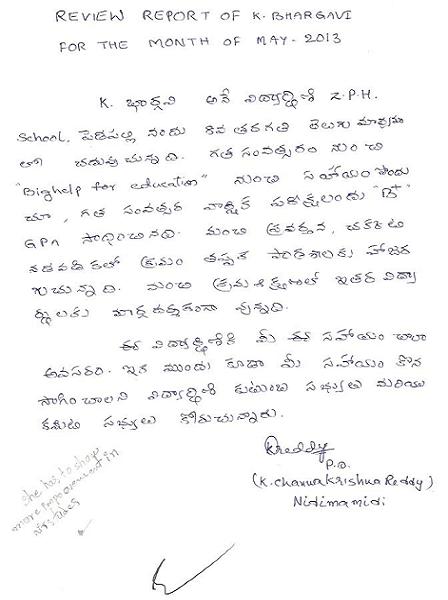 REVIEW REPORT OF K. BHARGAVI
FOR THE MONTH OF MAY - 2013
K. భార్గవి అనే విద్యార్థిని Z.P.H.
School, పెదపల్లి నందు 8వ తరగతి తెలుగు మాధ్యమం
లో చదువుచున్నది. గత సంవత్సరం నుంచి
"Bighelp for education" నుంచి సహాయం పొందు
చూ, గత సంవత్సర వార్షిక పరీక్షలందు "B+"
GPA సాధించినది. మంచి ప్రవర్తన, చక్కటి
నడవడికలో క్రమం తప్పక పాఠశాలకు హాజర
గుచున్నది. మంచి క్రమశిక్షణలో ఇతర విద్యా
ర్థులకు మార్గదర్శకంగా వున్నది.
ఈ విద్యార్థినికి మీ ఈ సహాయం చాలా
అవసరం. ఇక ముందు కూడా మీ సహాయం కొన
సాగించాలని విద్యార్థిని కుటుంబ సభ్యులు మరియు
కమిటి సభ్యులు కోరుచున్నారు.
KReddy
P.D.
(K. Charua Krishna Reddy)
Nidimamidi
She has to show
more improvement in